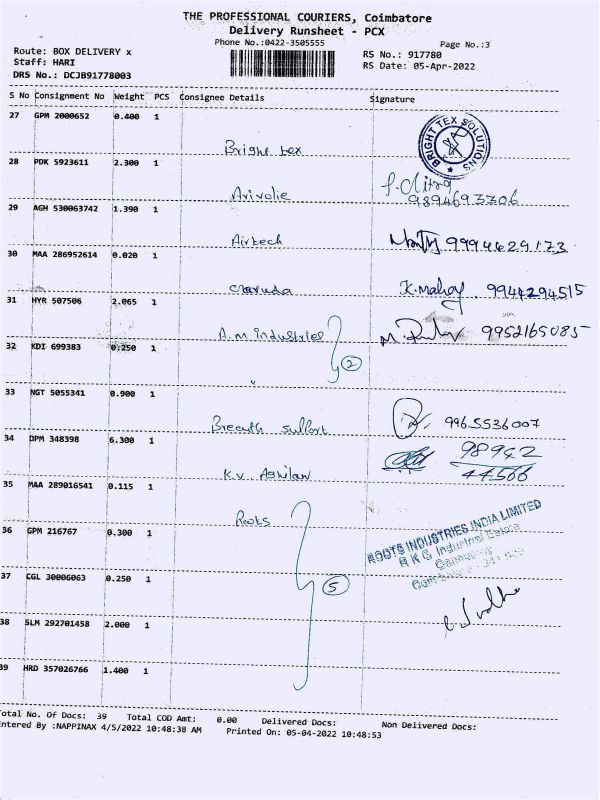 THE PROFESSIONAL COURIERS, Coimbatore
Delivery Runsheet - PCX
Phone No.:0422-3505555
Page No.:3
Route: BOX DELIVERY x
RS No.: 917780
Staff: HARI
RS Date: 05-Apr-2022
DRS No.: DCJB91778003
S No Consignment No Weight PCS Consignee Details Signature
27 GPM 2000652 0.400 1
Bright tex
BRIGHT TEX SOLUTIONS
28 PDK 5923611 2.300 1
Arivolie
9894693706
29 AGH 530063742 1.390 1
Airtech 9994429173
30 MAA 286952614 0.020 1
Garuda K. Mahoy. 9944294515
31 HYR 507506 2.065 1
A.M. Industries 9952165085
32 KDI 699383 0.250 1
2
"
33 NGT 5055341 0.900 1
Breath 9965536007
34 DPM 348398 6.300 1
98942
44566
K.V.
35 MAA 289016541 0.115 1
Roots
ROOTS INDUSTRIES INDIA LIMITED
R K G Industrial Estate
36 GPM 216767 0.300 1
37 CGL 30006063 0.250 1
5
38 SLM 292701458 2.000 1
39 HRD 357026766 1.400 1
Total No. Of Docs: 39 Total COD Amt: 0.00 Delivered Docs: Non Delivered Docs:
Entered By :NAPPINAX 4/5/2022 10:48:38 AM Printed On: 05-04-2022 10:48:53